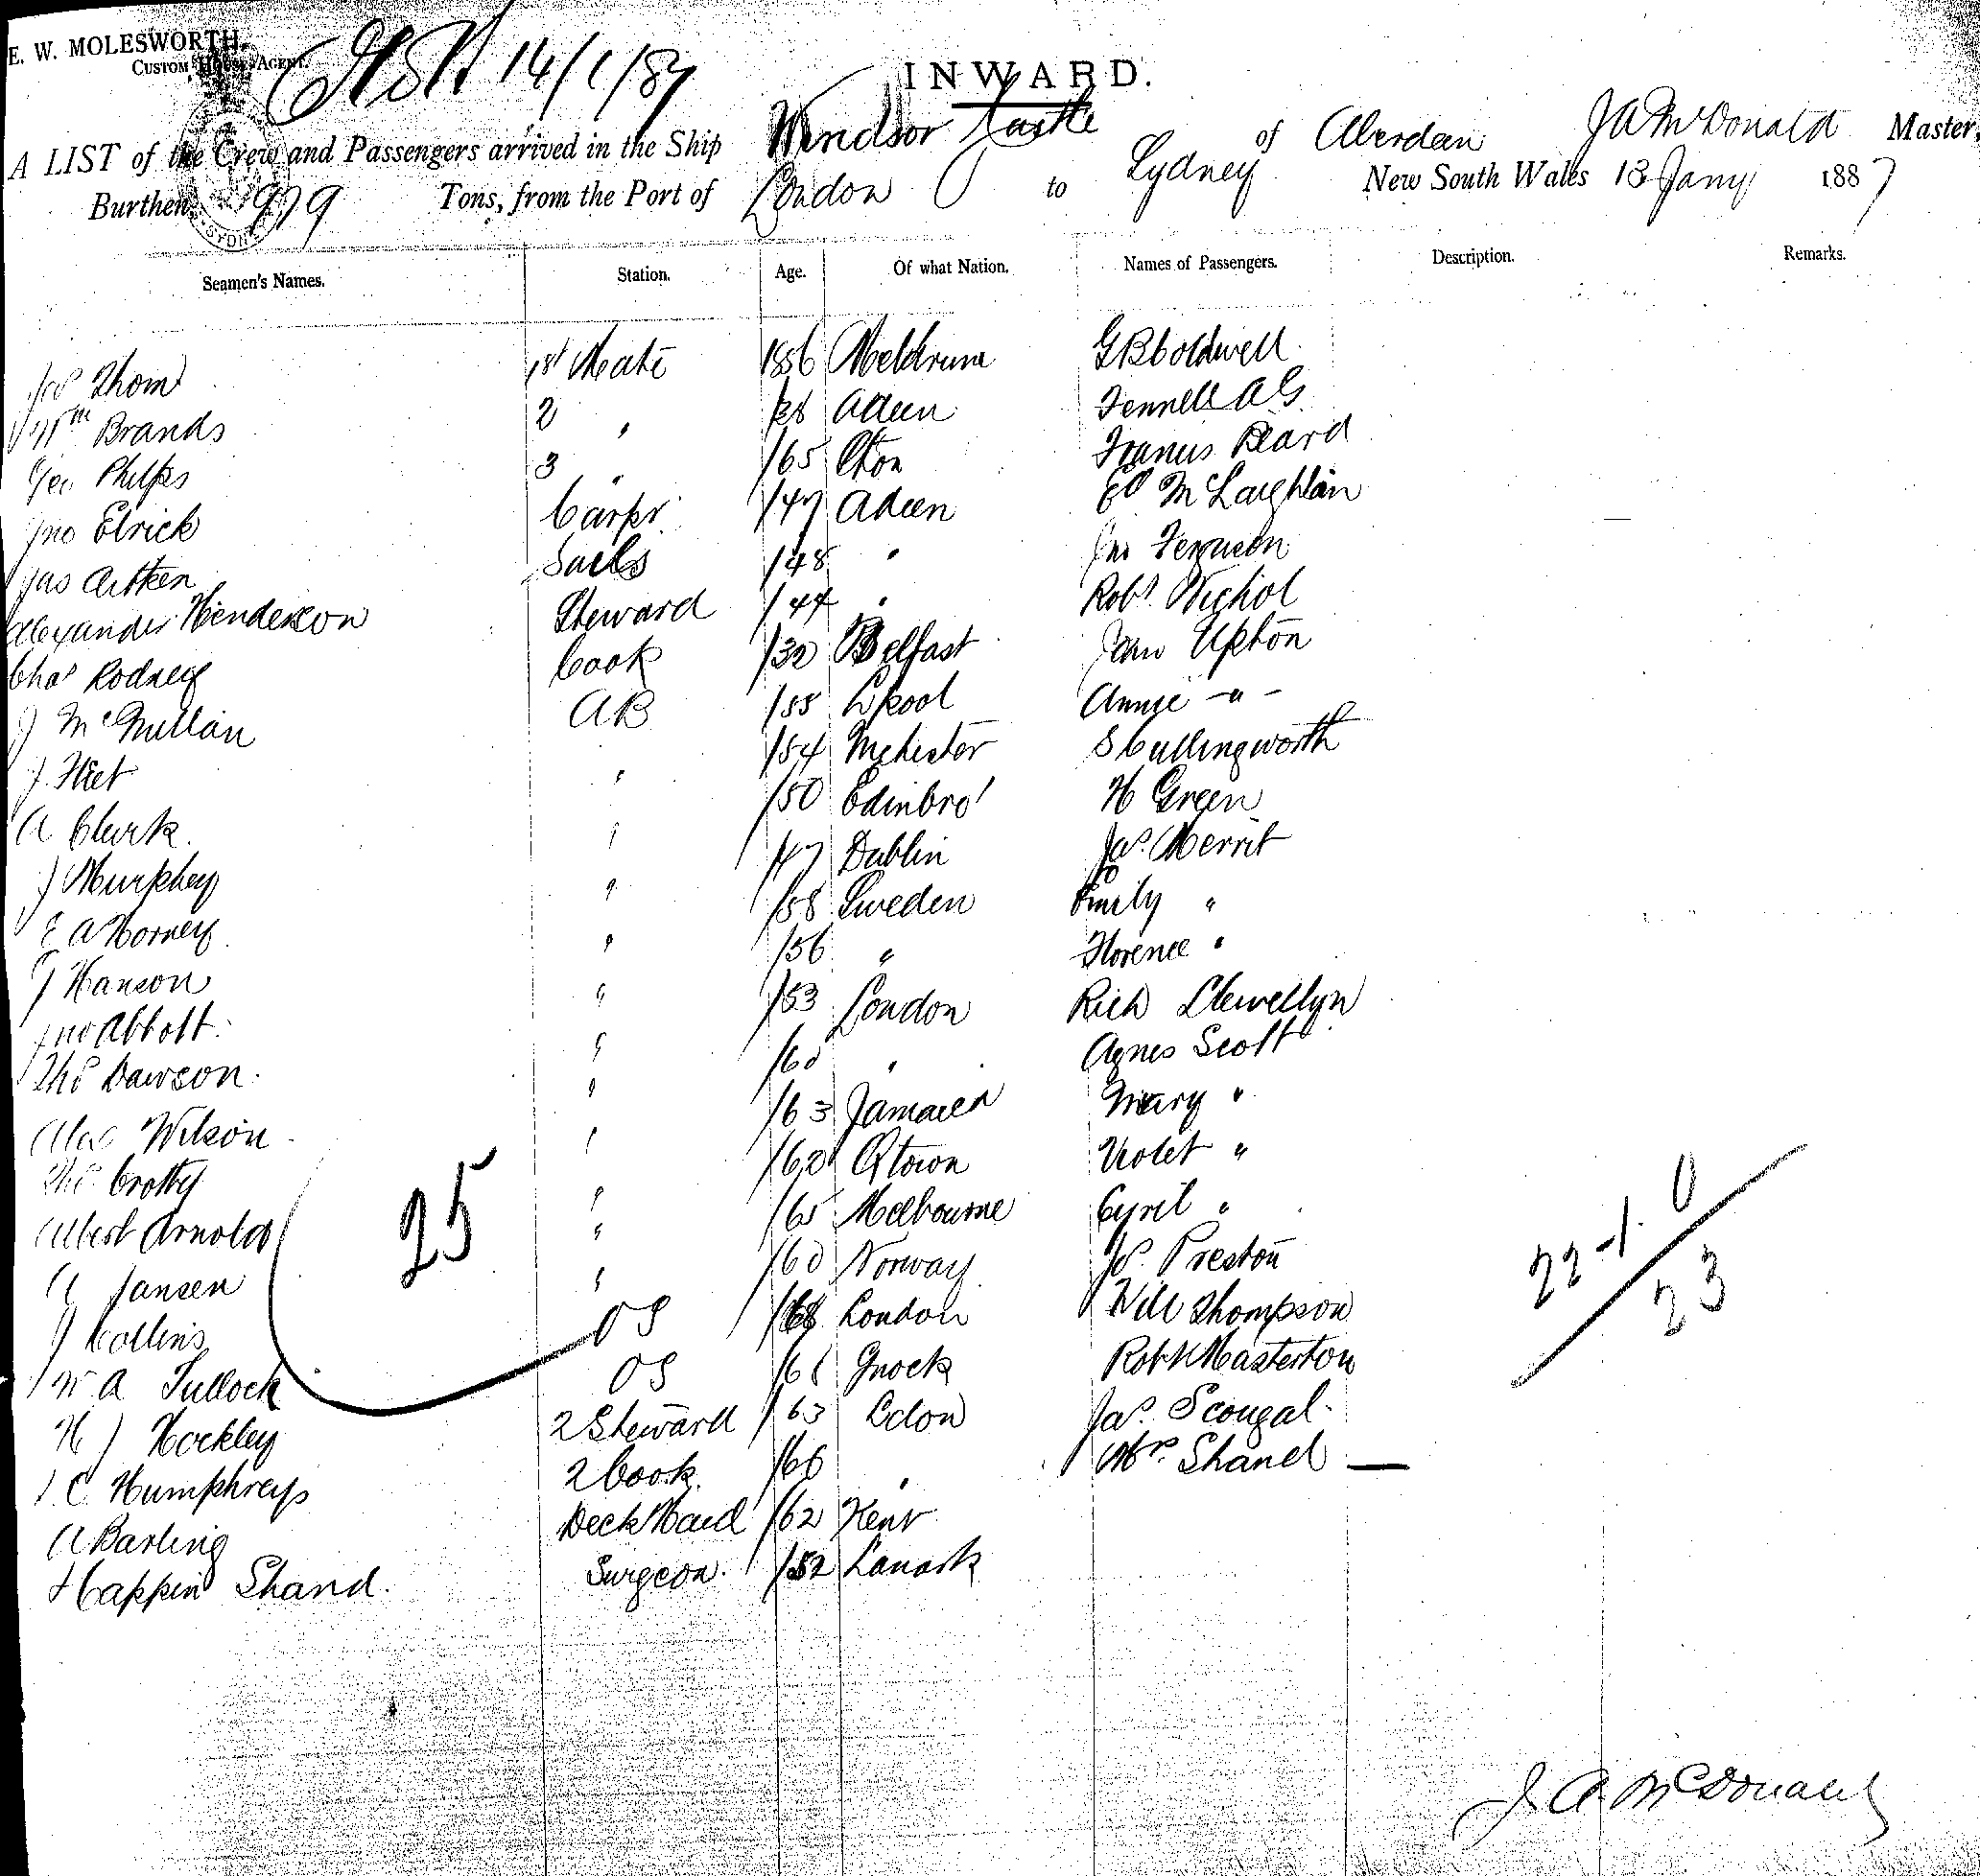 E. W. MOLESWORTH,
CUSTOM HOUSE AGENT.
14/1/87
INWARD.
A LIST of the Crew and Passengers arrived in the Ship Windsor Castle of Aberdeen J A McDonald Master,
Burthen 979 Tons, from the Port of London to Sydney New South Wales 13 Jany 1887
SYDNEY
Seamen's Names. Station. Age. Of what Nation. Names of Passengers. Description. Remarks.
Jas Thom 1st Mate 1856 Meldrum G B Coldwell
Wm Brands 2 " /38 Adeen Fennell A G
Geo Phelps 3 " /65 Francis Beard
Jno Elrick Carpr /47 Adeen Ed McLaughlan
Jas Aitken Sails /48 " Jno Ferguson
Alexander Henderson Steward /44 " Robt Nichol
Chas Rodney Cook /32 Belfast Upton
J McMillan AB /55 Lpool Annie "
J. Fleet /54 Mchester S Cullingworth
A Clark " /50 Edinbro' H Green
J Murphy " /47 Dublin Jas Merrit
E A Horney " /58 Sweden Emily "
J Hanson " /56 " Florence "
Jno Abbott " /53 London Rich Llewellyn
Thos Dawson " /60 " Agnes Scott
Alex Wilson " /63 Jamaica Mary "
Thos Crotty " /62 Qtown Violet "
Albert Arnold " /65 Melbourne Cyril "
A Jansen " /60 Norway Js. Preston
J Collins " OS London Will Thompson
W A Tullock OS /61 Gnock Robt Masterton
H J Hockley 2 Steward /63 Ldon Jas. Scougal
C Humphreys 2 Cook /66 " Mrs. Shand —
A Barling Deck Hand /62 Kent
Happin Shand Surgeon /52 Lanark
25
22-1. 0
23
J. A. McDonald